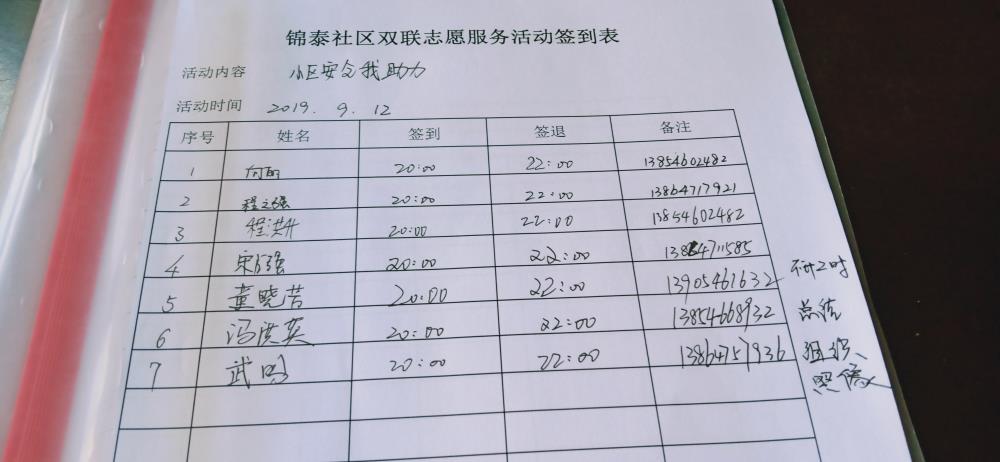 锦泰社区双联志愿服务活动签到表
活动内容 小区安全我助力
活动时间 2019. 9. 12
序号 姓名 签到 签退 备注
1 向丽 20:00 22:00 13854602482
2 程之强 20:00 22:00 13864717921
3 程洪升 20:00 22:00 13854602482
4 宋强 20:00 22:00 13864711585
5 童晓芸 20:00 22:00 13905461632 不计工时
6 冯洪英 20:00 22:00 13854668932 总结
7 武 20:00 22:00 13864757936 组织、
照像